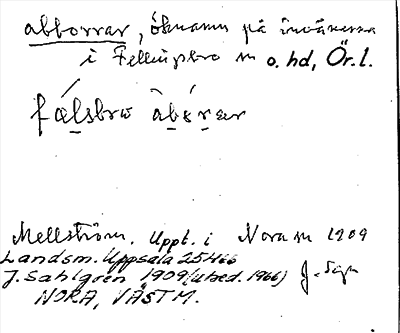 abborrar, öknamn på invånarna
i Fellingsbro sn o. hd, Ör. l.
fælsbrω abɛrar
Mellström. Uppt. i Nora sn 1909
Landsm. Uppsala 25466
J. Sahlgren 1909 (utsed. 1966)
NORA, VÄSTM.